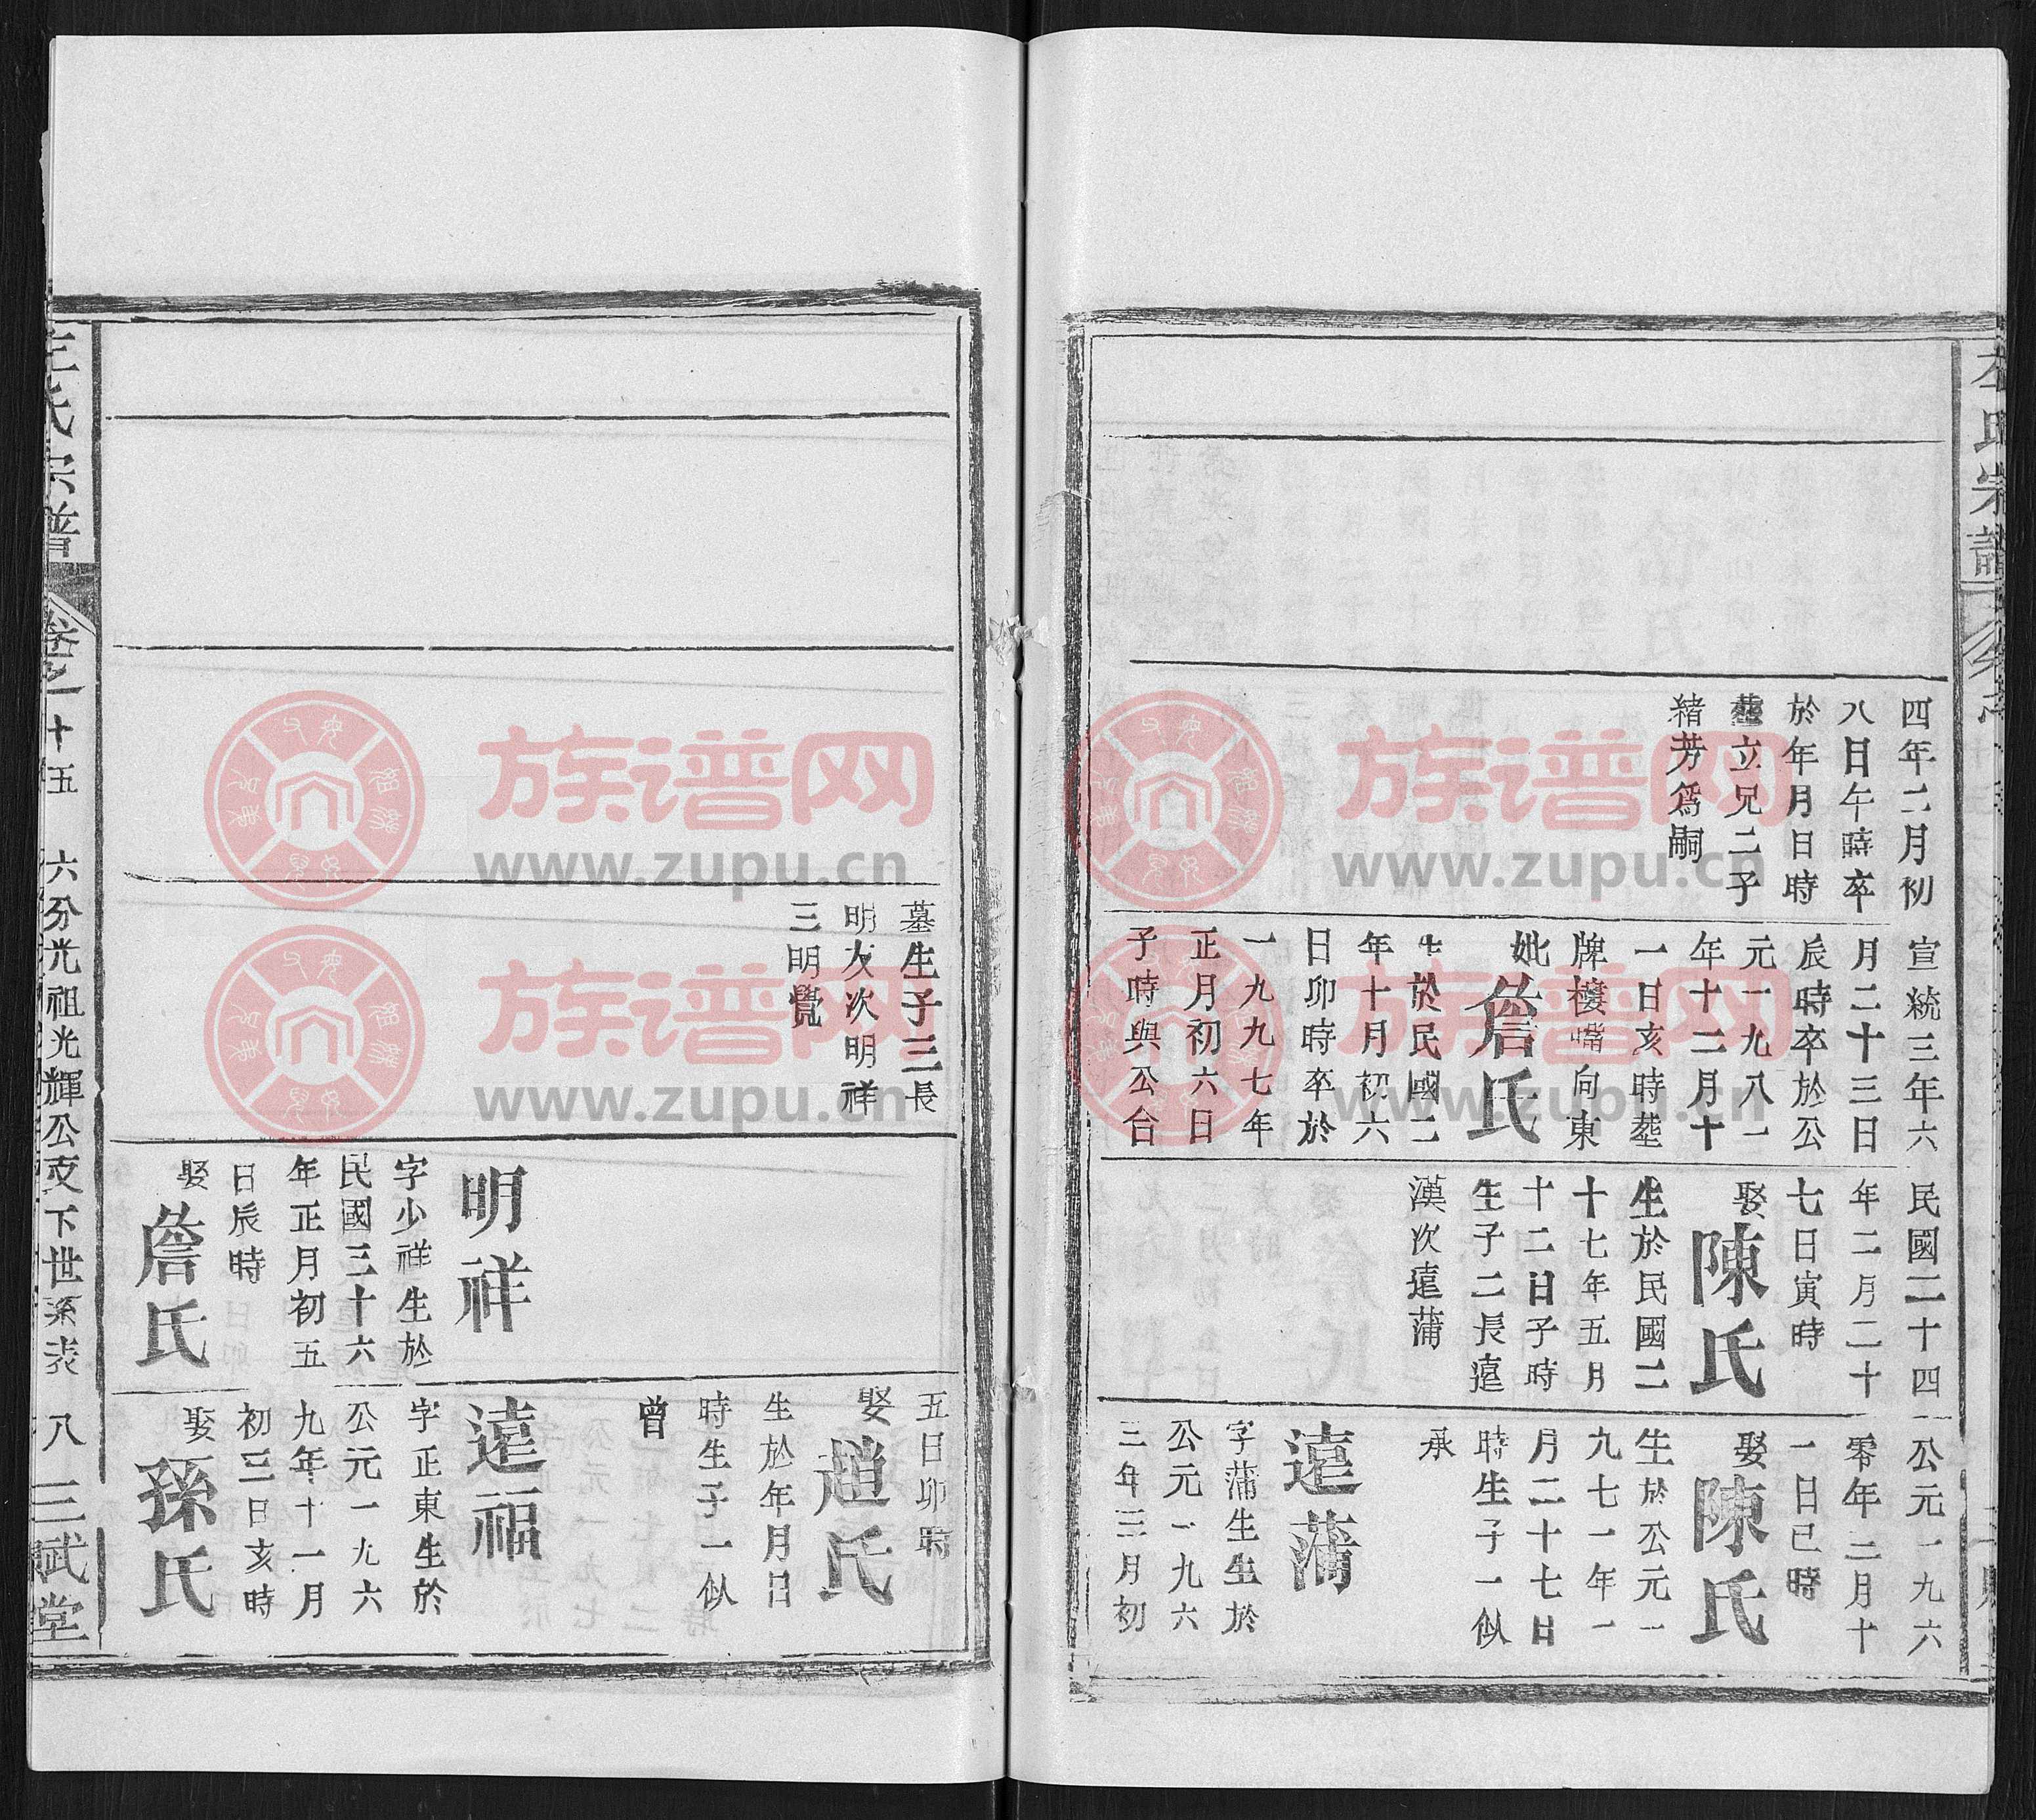 氏宗譜
四年二月初
八日午時卒
於年月日時
塟立兄二子
緒芳爲嗣
宣統三年六
月二十三日
辰時卒於公
元一九八一
年十二月十
一日亥時塟
牌樓嘴向東
妣詹氏
生於民國二
年十月初六
日卯時卒於
一九九七年
正月初六日
子時與公合
民國二十四
年二月二十
七日寅時
娶陳氏
生於民國二
十七年五月
十二日子時
生子二長遠
漢次遠蒲
公元一九六
零年二月十
一日巳時
娶陳氏
生於公元一
九七一年一
月二十七日
時生子一似
承
遠蒲
字蒲生生於
公元一九六
三年三月初
墓生子三長
明友次明祥
三明覺
明祥
字少祥生於
民國三十六
年正月初五
日辰時
娶詹氏
五日卯時
娶趙氏
生於年月日
時生子一似
曾
遠福
字正東生於
公元一九六
九年十一月
初三日亥時
娶孫氏
氏宗譜
卷之十五
六分光祖光輝公支下世系表
八
三武堂
族谱网
www.zupu.cn
族谱网
www.zupu.cn
族谱网
www.zupu.cn
族谱网
www.zupu.cn